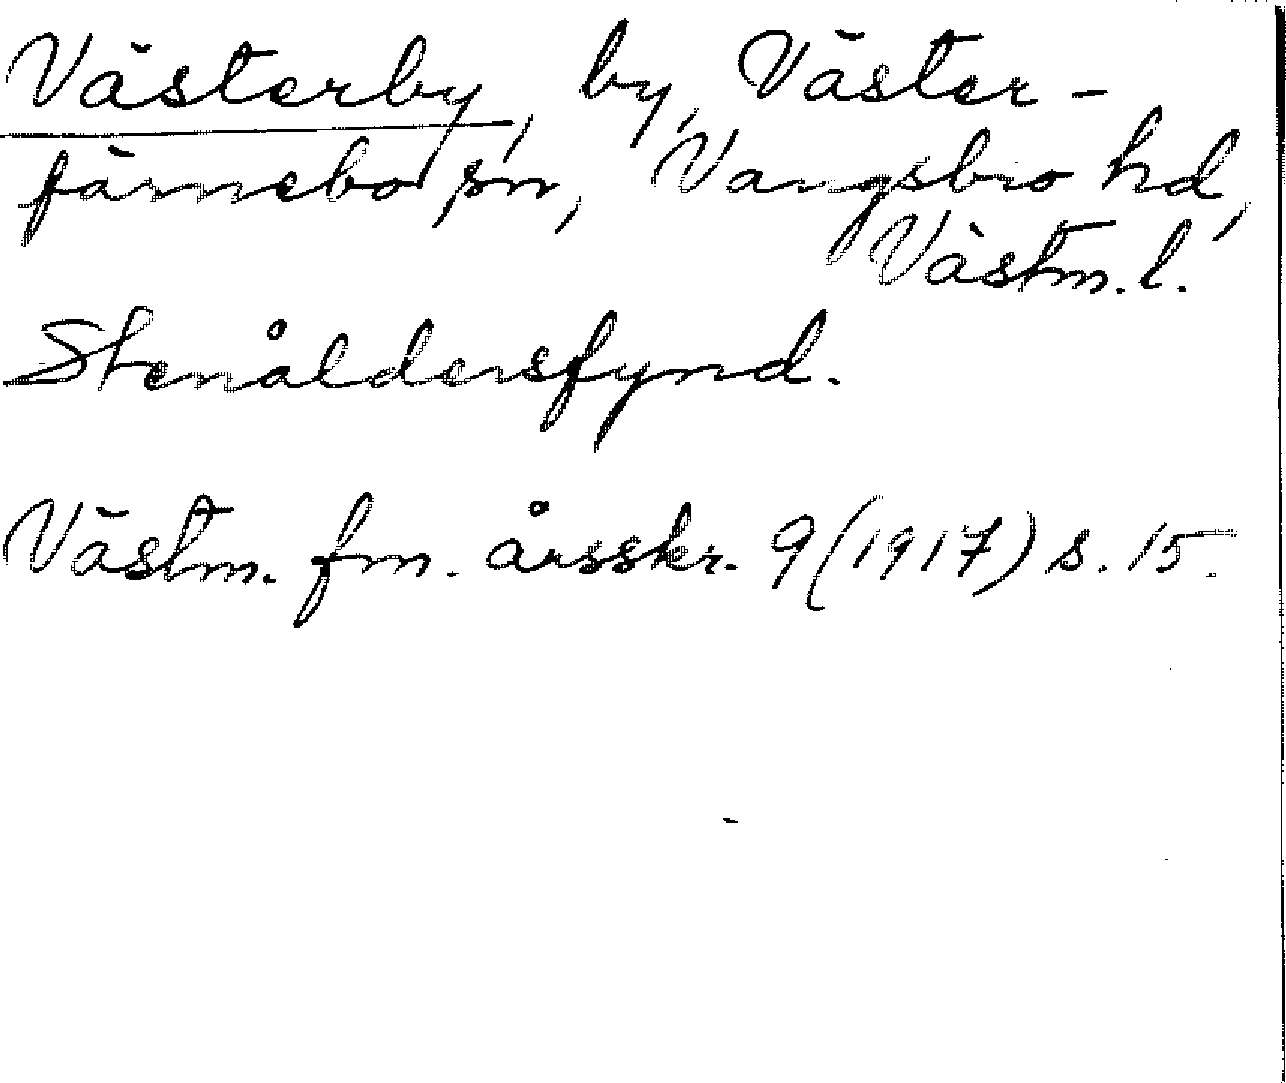 Västerby, by, Väster-
färnebo sn, Vangsbro hd,
Västm. l.
Stenåldersfynd.
Västm. fm. årsskr. 9 (1917) s. 15.